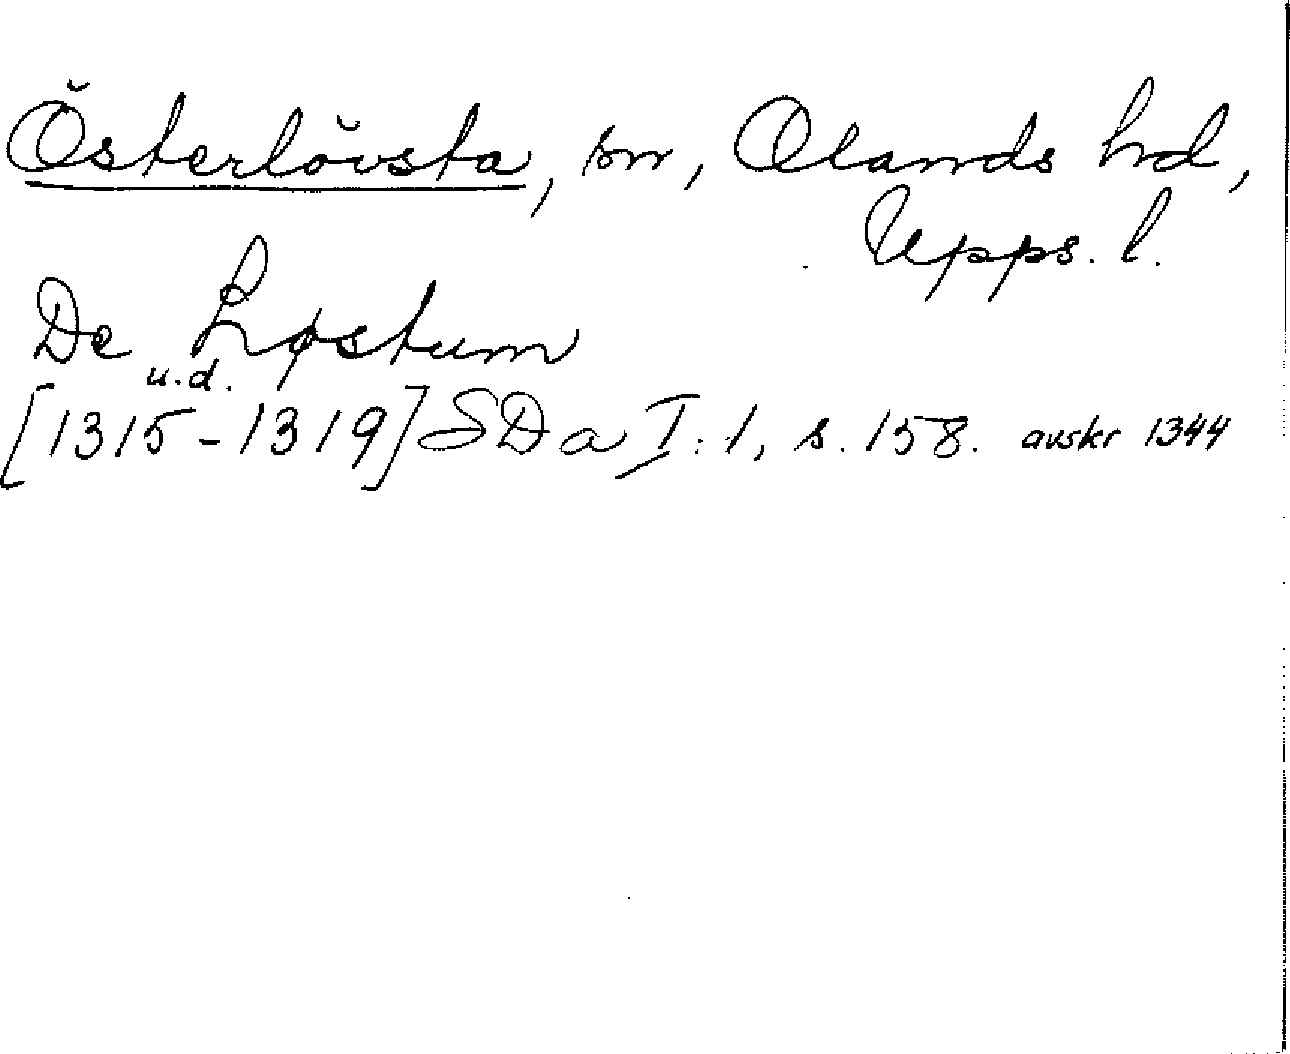 Österlövsta, sn, Olands hd,
Upps. l.
De Løstum
u.d.
[1315-1319] SD a I:1, s. 158. avskr 1344